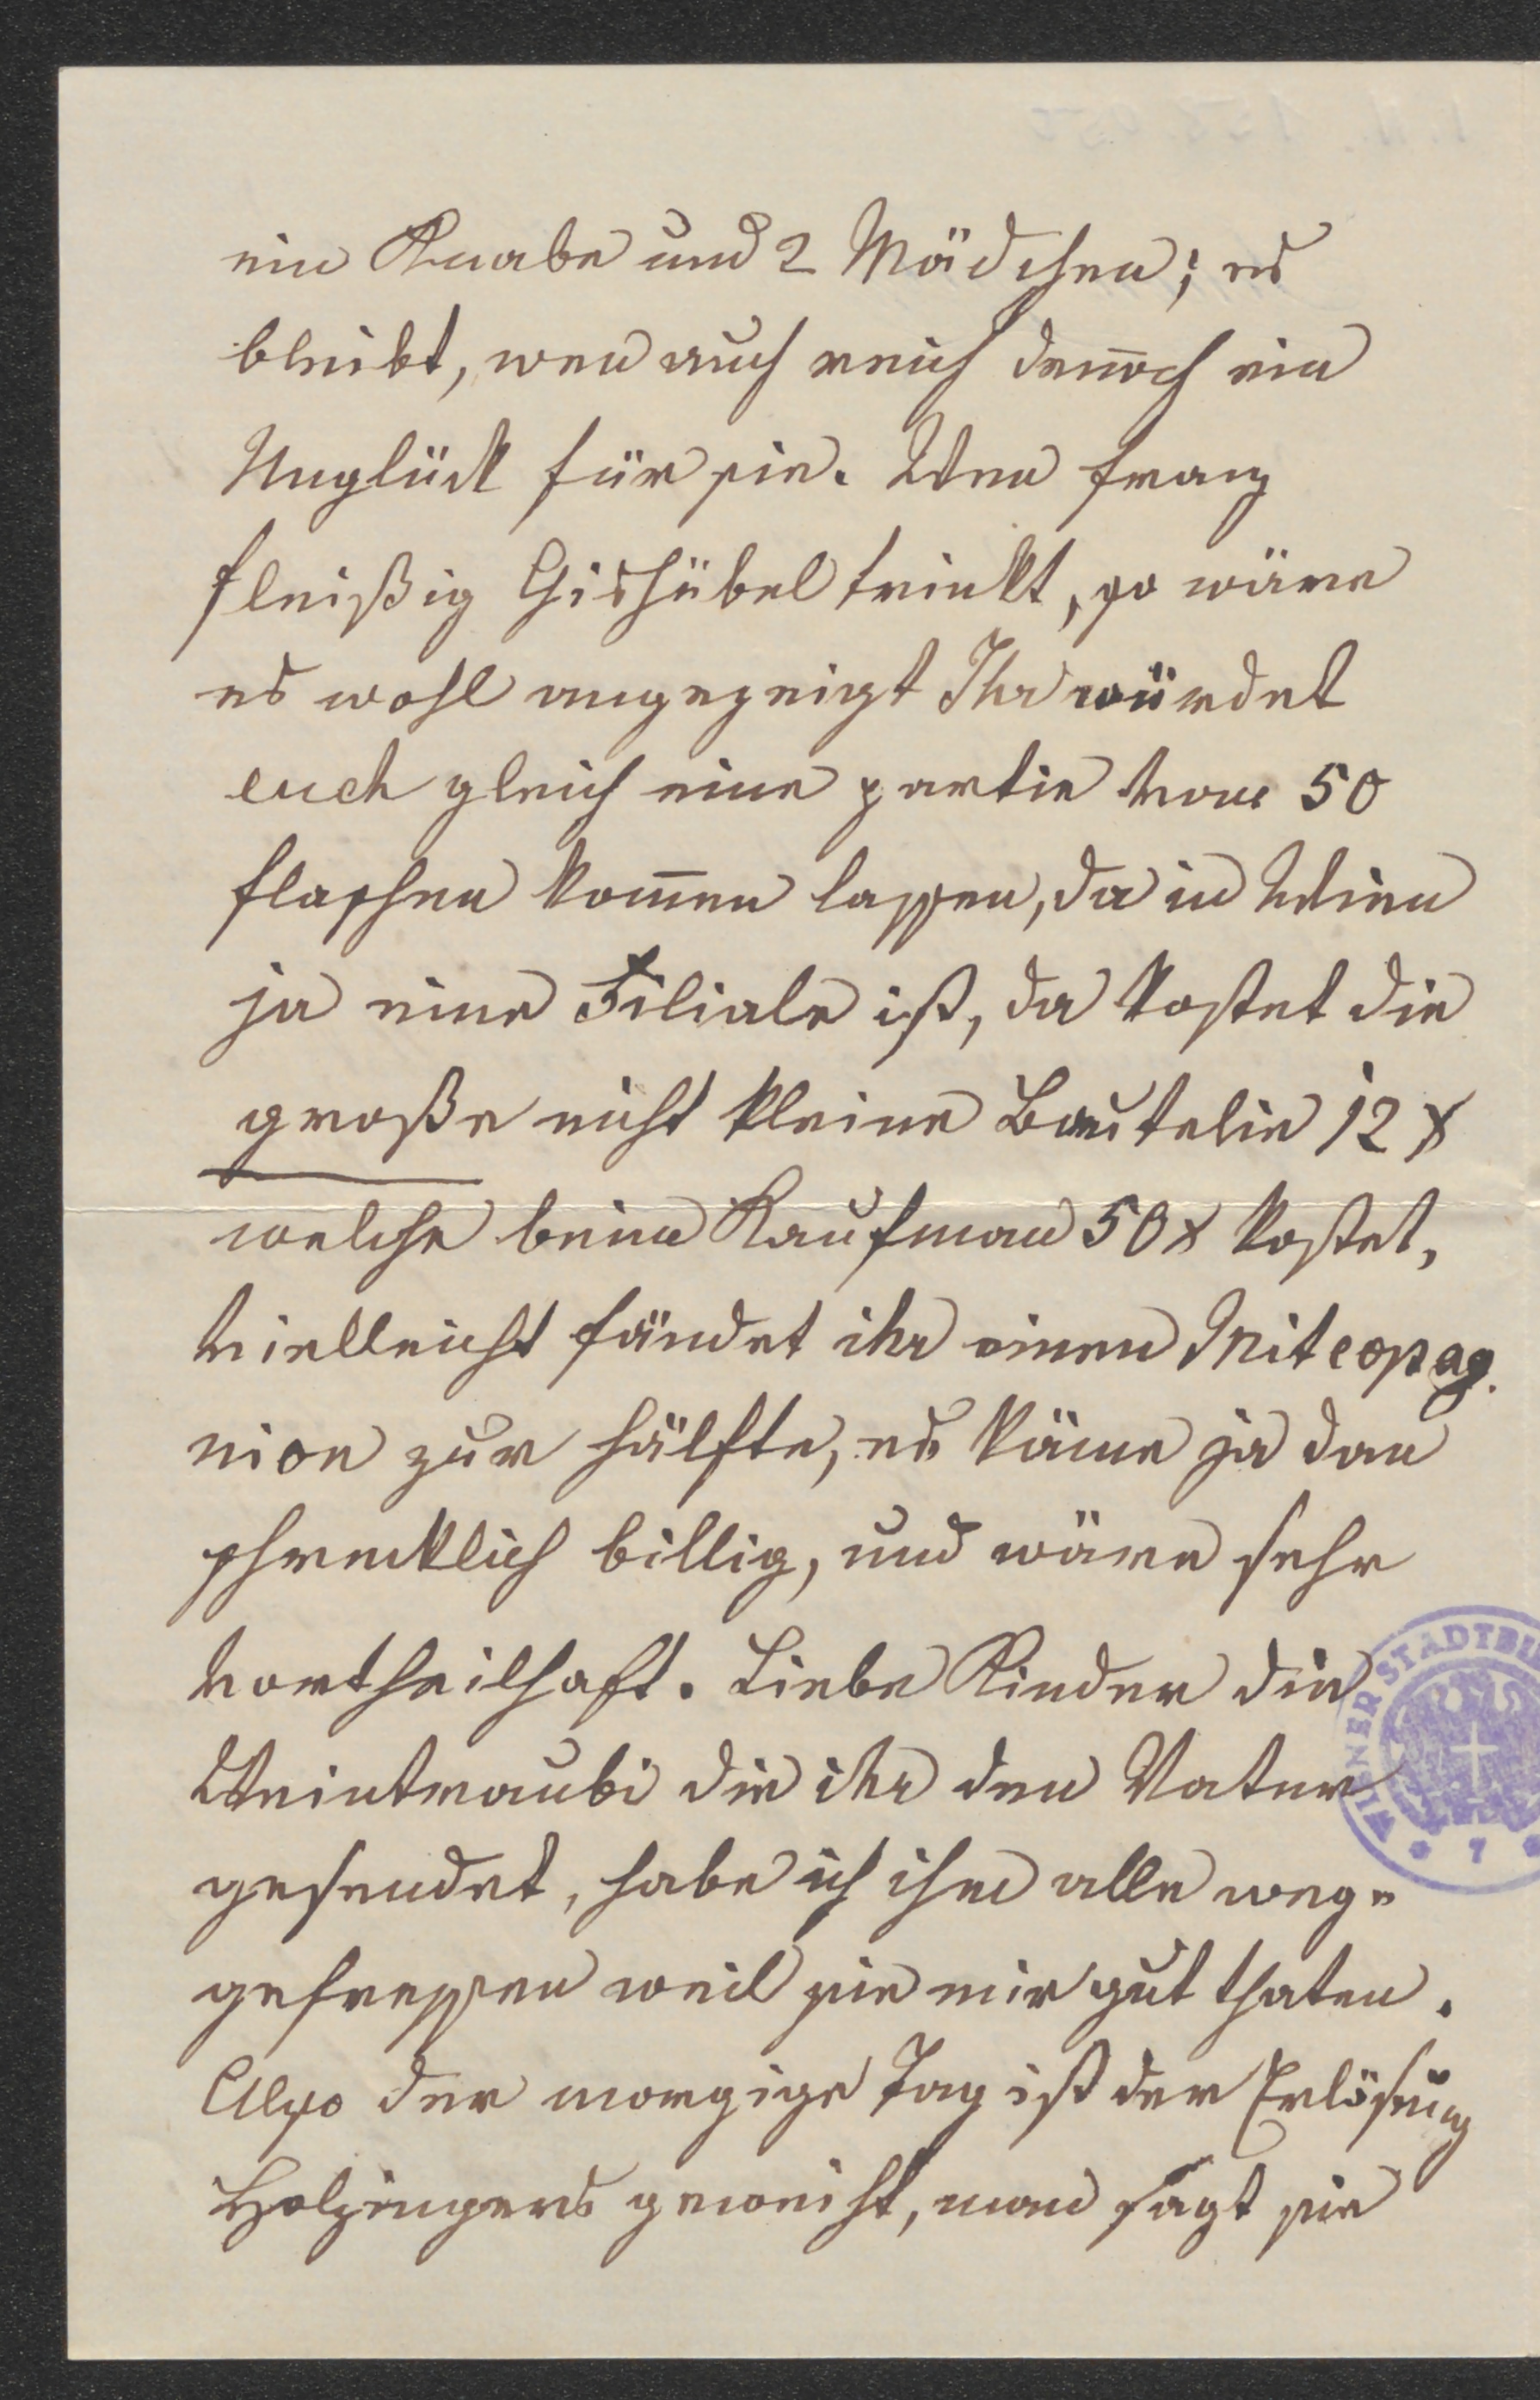 ein Knabe und 2 Mädchen; es
bleibt, wen auch reich den̄och ein
Unglück für sie. Wen Franz
fleißig Gishübel trinkt, so wäre
es wohl angezeigt Ihr würdet
euch gleich eine partie von 50
Flaschen kom̄en lassen, da in Wien
ja eine Filiale ist, da kostet die
große nicht kleine Bautelie 12 x
welche beim Kaufman 50 x kostet,
vielleicht fändet ihr einen Mitcopag.
nion zur Hälfte, es käme ja dan
schrecklich billig, und wäre sehr
vortheilhaft. Liebe Kinder die
Weintraubi die ihr den Vater
gesendet, habe ich ihm alle weg-
gefressen weil sie mir gut thaten.
Also der morgige Tag ist der Erlösung
Holzingers geweiht, man sagt sie
WIENER STADTBI
* 7 *